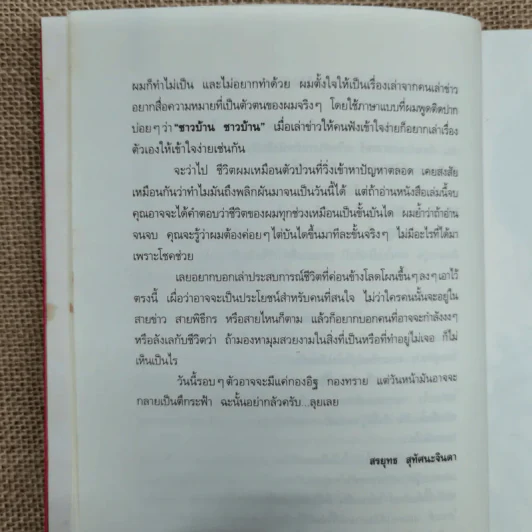 ผมก็ทำไม่เป็น และไม่อยากทำด้วย ผมตั้งใจให้เป็นเรื่องเล่าจากคนเล่าข่าว
อยากสื่อความหมายที่เป็นตัวตนของผมจริงๆ โดยใช้ภาษาแบบที่ผมพูดติดปาก
บ่อยๆ ว่า "ชาวบ้าน ชาวบ้าน" เมื่อเล่าข่าวให้คนฟังเข้าใจง่ายก็อยากเล่าเรื่อง
ตัวเองให้เข้าใจง่ายเช่นกัน
จะว่าไป ชีวิตผมเหมือนตัวป่วนที่วิ่งเข้าหาปัญหาตลอด เคยสงสัย
เหมือนกันว่าทำไมมันถึงพลิกผันมาจนเป็นวันนี้ได้ แต่ถ้าอ่านหนังสือเล่มนี้จบ
คุณอาจจะได้คำตอบว่าชีวิตของผมทุกช่วงเหมือนเป็นขั้นบันได ผมย้ำว่าถ้าอ่าน
จนจบ คุณจะรู้ว่าผมต้องค่อยๆ ไต่บันไดขึ้นมาทีละขั้นจริงๆ ไม่มีอะไรที่ได้มา
เพราะโชคช่วย
เลยอยากบอกเล่าประสบการณ์ชีวิตที่ค่อนข้างโลดโผนขึ้นๆ ลงๆ เอาไว้
ตรงนี้ เผื่อว่าอาจจะเป็นประโยชน์สำหรับคนที่สนใจ ไม่ว่าใครคนนั้นจะอยู่ใน
สายข่าว สายพิธีกร หรือสายไหนก็ตาม แล้วก็อยากบอกคนที่อาจจะกำลังงงๆ
หรือลังเลกับชีวิตว่า ถ้ามองหามุมสวยงามในสิ่งที่เป็นหรือที่ทำอยู่ไม่เจอ ก็ไม่
เห็นเป็นไร
วันนี้รอบๆ ตัวอาจจะมีแค่กองอิฐ กองทราย แต่วันหน้ามันอาจจะ
กลายเป็นตึกระฟ้า ฉะนั้นอย่ากลัวครับ...ลุยเลย
สรยุทธ สุทัศนะจินดา